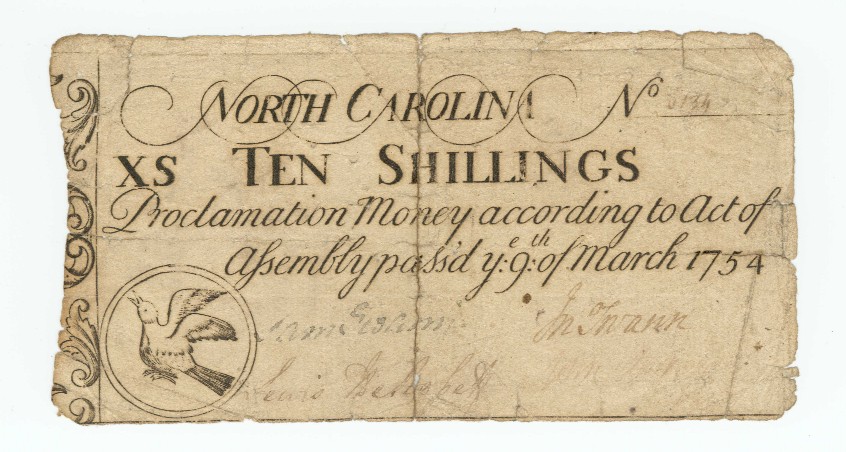 NORTH CAROLINA No
XS TEN SHILLINGS
Proclamation Money according to Act of
Assembly pass'd y:e 9:th of March 1754
Jno Swann
Lewis